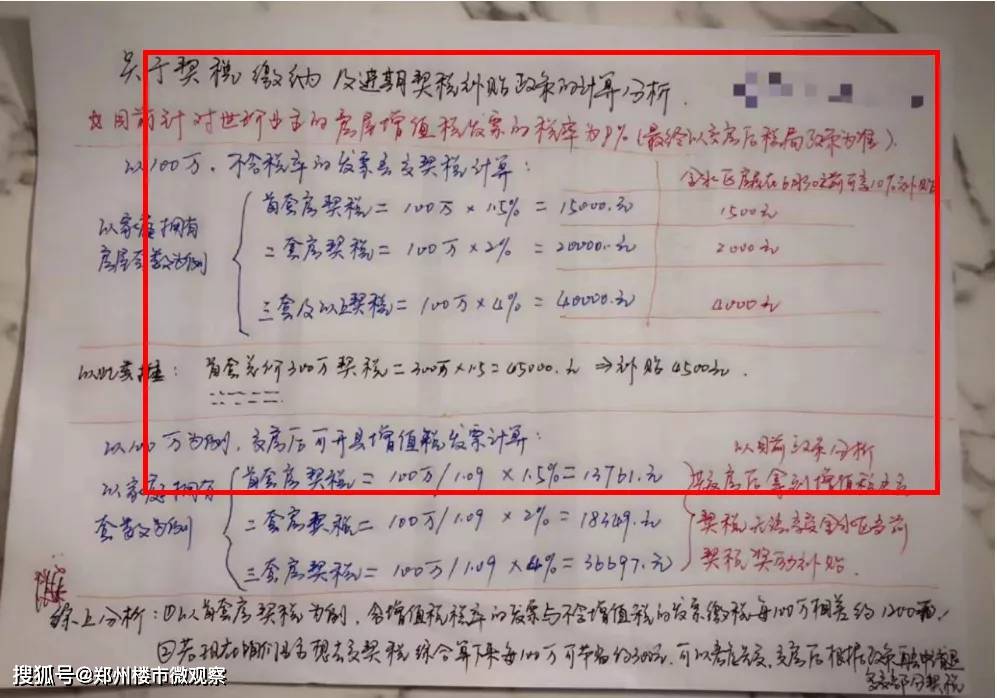 关于契税缴纳及近期契税补贴政策的计算分析.
目前针对世玠业主的房屋增值税发票的税率为9%(最终以交房后税局政策为准).
以100万,不含税率的发票去交契税计算:
金水区房屋在6月30之前可享10%补贴
以家庭拥有
房屋套数为例
首套房契税= 100万×1.5% = 15000.元
1500元
二套房契税= 100万×2% = 20000.元
2000元
三套及以上契税= 100万×4% = 40000.元
4000元
以此类推: 首套总价300万契税=300万×1.5=45000.元 ⇒补贴4500元.
以100万为例,交房后可开具增值税发票计算:
以目前政策分析
以家庭拥有
套数为例
首套房契税= 100万/1.09 ×1.5%=13761.元
二套房契税= 100万/1.09 × 2%= 18349.元
三套房契税= 100万/1.09 ×4%=36697.元
其交房后拿到增值税去交
契税无法享受金水区当前
契税奖励补贴.
综上分析:①以首套房契税为例,含增值税税率的发票与不含增值税的发票缴税每100万相差约1200元.
②若现在咱们业主想去交契税综合算下来每100万可节省约300元,可以考虑去交,交房后根据政策再去申请退
搜狐号@郑州楼市微观察